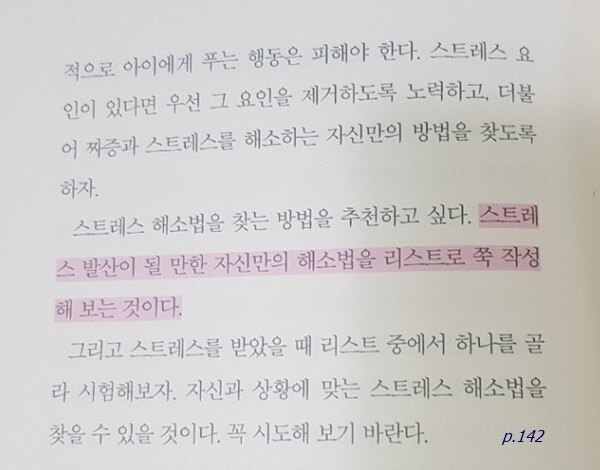 적으로 아이에게 푸는 행동은 피해야 한다. 스트레스 요
인이 있다면 우선 그 요인을 제거하도록 노력하고, 더불
어 짜증과 스트레스를 해소하는 자신만의 방법을 찾도록
하자.
스트레스 해소법을 찾는 방법을 추천하고 싶다. 스트레
스 발산이 될 만한 자신만의 해소법을 리스트로 쭉 작성
해 보는 것이다.
그리고 스트레스를 받았을 때 리스트 중에서 하나를 골
라 시험해보자. 자신과 상황에 맞는 스트레스 해소법을
찾을 수 있을 것이다. 꼭 시도해 보기 바란다.
p.142